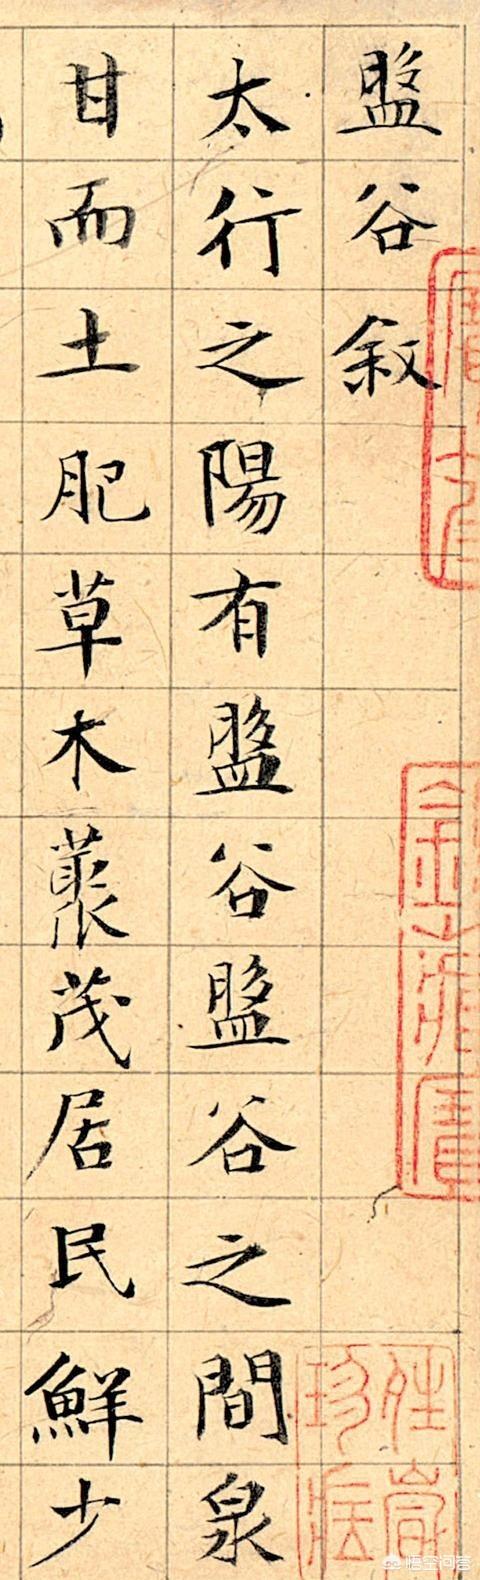 盤谷敘
太行之陽有盤谷盤谷之間泉
甘而土肥草木藂茂居民鮮少
悟空问答